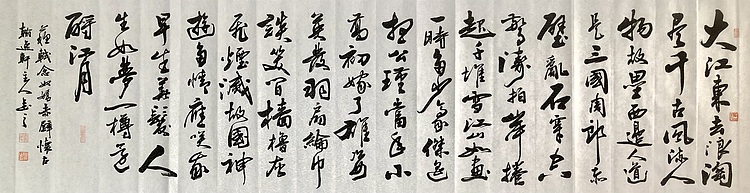 大江東去浪淘
尽千古風流人
物故壘西邊人道
是三國周郎赤
壁亂石穿空
驚濤拍岸捲
起千堆雪江山如畫
一時多少豪傑遥
想公瑾當年小
喬初嫁了雄姿
英發羽扇綸巾
談笑間檣櫓灰
飛煙滅故國神
遊多情應笑我
早生華髮人
生如夢一樽還
酹江月
蘇軾念奴嬌赤壁懷古
軒主人